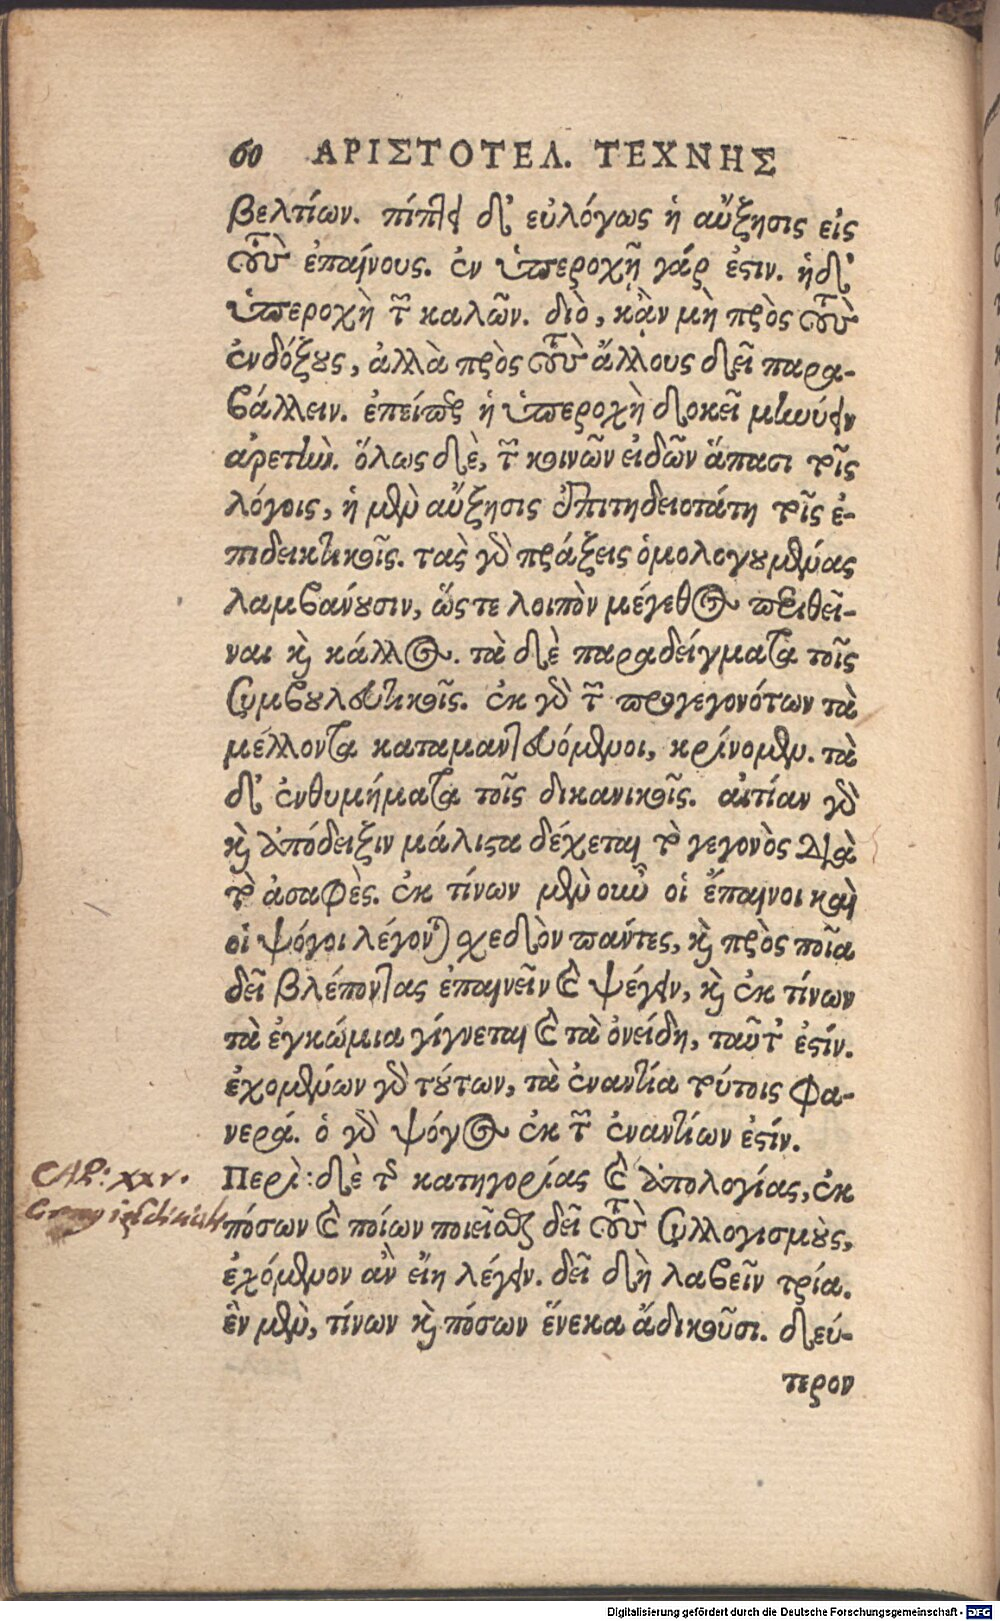 60 ΑΡΙΣΤΟΤΕΛ. ΤΕΧΝΗΣ
βελτίων. πίπτει δ' εὐλόγως ἡ αὔξησις εἰς
τοὺς ἐπαίνους. ἐν ὑπεροχῇ γάρ ἐστιν. ἡ δ'
ὑπεροχὴ τῶν καλῶν. διὸ, κᾂν μὴ πρὸς τοὺς
ἐνδόξους, ἀλλὰ πρὸς τοὺς ἄλλους δεῖ παρα-
βάλλειν. ἐπείπερ ἡ ὑπεροχὴ δοκεῖ μηνύειν
ἀρετήν. ὅλως δὲ, τῶν κοινῶν εἰδῶν ἅπασι τοῖς
λόγοις, ἡ μὲν αὔξησις ἐπιτηδειοτάτη τοῖς ἐ-
πιδεικτικοῖς. τὰς γὰρ πράξεις ὁμολογουμένας
λαμβάνουσιν, ὥστε λοιπὸν μέγεθος περιθεῖ-
ναι καὶ κάλλος. τὰ δὲ παραδείγματα τοῖς
συμβουλευτικοῖς. ἐκ γὰρ τῶν προγεγονότων τὰ
μέλλοντα καταμαντευόμενοι, κρίνομεν. τὰ
δ' ἐνθυμήματα τοῖς δικανικοῖς. αἰτίαν γὰρ
καὶ ἀπόδειξιν μάλιστα δέχεται τὸ γεγονὸς διὰ
τὸ ἀσαφές. ἐκ τίνων μὲν οὖν οἱ ἔπαινοι καὶ
οἱ ψόγοι λέγονται σχεδὸν πάντες, καὶ πρὸς ποῖα
δεῖ βλέποντας ἐπαινεῖν καὶ ψέγειν, καὶ ἐκ τίνων
τὰ ἐγκώμια γίγνεται καὶ τὰ ὀνείδη, ταῦτ' ἐστίν.
ἐχομένων γὰρ τούτων, τὰ ἐναντία τούτοις φα-
νερά. ὁ γὰρ ψόγος ἐκ τῶν ἐναντίων ἐστίν.
CAP: xxv.
Περὶ: δὲ τῆς κατηγορίας καὶ ἀπολογίας, ἐκ
πόσων καὶ ποίων ποιεῖσθαι δεῖ τοὺς συλλογισμοὺς,
ἐχόμενον ἂν εἴη λέγειν. δεῖ δὴ λαβεῖν τρία.
ἓν μὲν, τίνων καὶ πόσων ἕνεκα ἀδικοῦσι. δεύ-
τερον
Digitalisierung gefördert durch die Deutsche Forschungsgemeinschaft - DFG